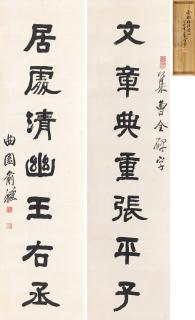 文章典重張平子
集曹全碑字
居處清幽王右丞
曲園俞樾